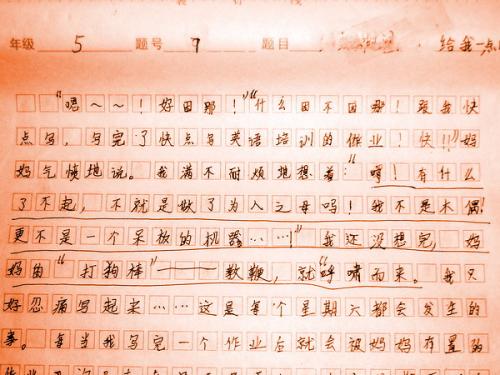 年级 5 题号 9 题目 给我一点
“嗯～～！好困那！”“什么困不困那！跟我快
点写，写完了快点写英语培训的作业！快！！”妈
妈气愤地说。我满不耐烦地想着：“哼！有什么
了不起，不就是做了为人之母吗！我不是木偶！
更不是一个呆板的机器……！”我还没想完，妈
妈的“打狗棒”——软鞭，就“呼啸而来。我只
好忍痛写起来……这是每个星期六都会发生的
事。每当我写完一个作业后就会被妈妈有星的